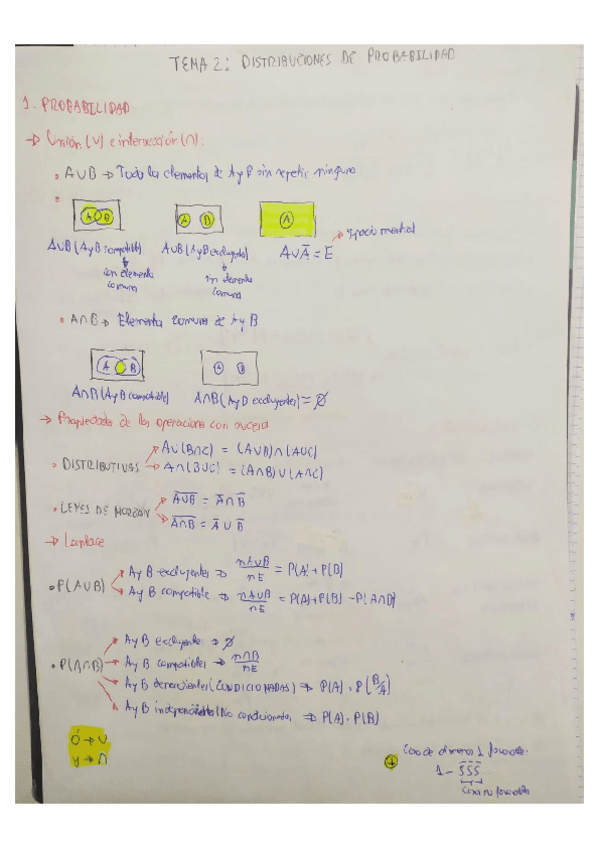 TEMA 2: DISTRIBUCIONES DE PROBABILIDAD
1. PROBABILIDAD
→ Unión (∪) e intersección (∩):
• A∪B → Todos los elementos de A y B sin repetir ninguno
A B A B A
A∪B (A y B compatibles) A∪B (A y B excluyentes) A∪Ā = E → espacio muestral
con elementos comunes
sin elementos comunes
• A∩B → Elementos comunes de A y B
A B A B
A∩B (A y B compatibles) A∩B (A y B excluyentes) = ∅
→ Propiedades de las operaciones con sucesos
• DISTRIBUTIVAS → A∪(B∩C) = (A∪B)∩(A∪C)
→ A∩(B∪C) = (A∩B)∪(A∩C)
• LEYES DE MORGAN → \overline{A∪B} = Ā∩B̄
→ \overline{A∩B} = Ā∪B̄
→ Laplace
• P(A∪B) → A y B excluyentes → nA∪B/nE = P(A)+P(B)
→ A y B compatibles → nA∪B/nE = P(A)+P(B)-P(A∩B)
• P(A∩B) → A y B excluyentes → ∅
→ A y B compatibles → n∩B/nE
→ A y B dependientes (CONDICIONADAS) → P(A) · P(B/A)
→ A y B independientes (No condicionadas) → P(A) · P(B)
Ó → ∪
Y → ∩
+ Caso de al menos 1 favorable:
1 - S̄S̄S̄
Casos no favorables